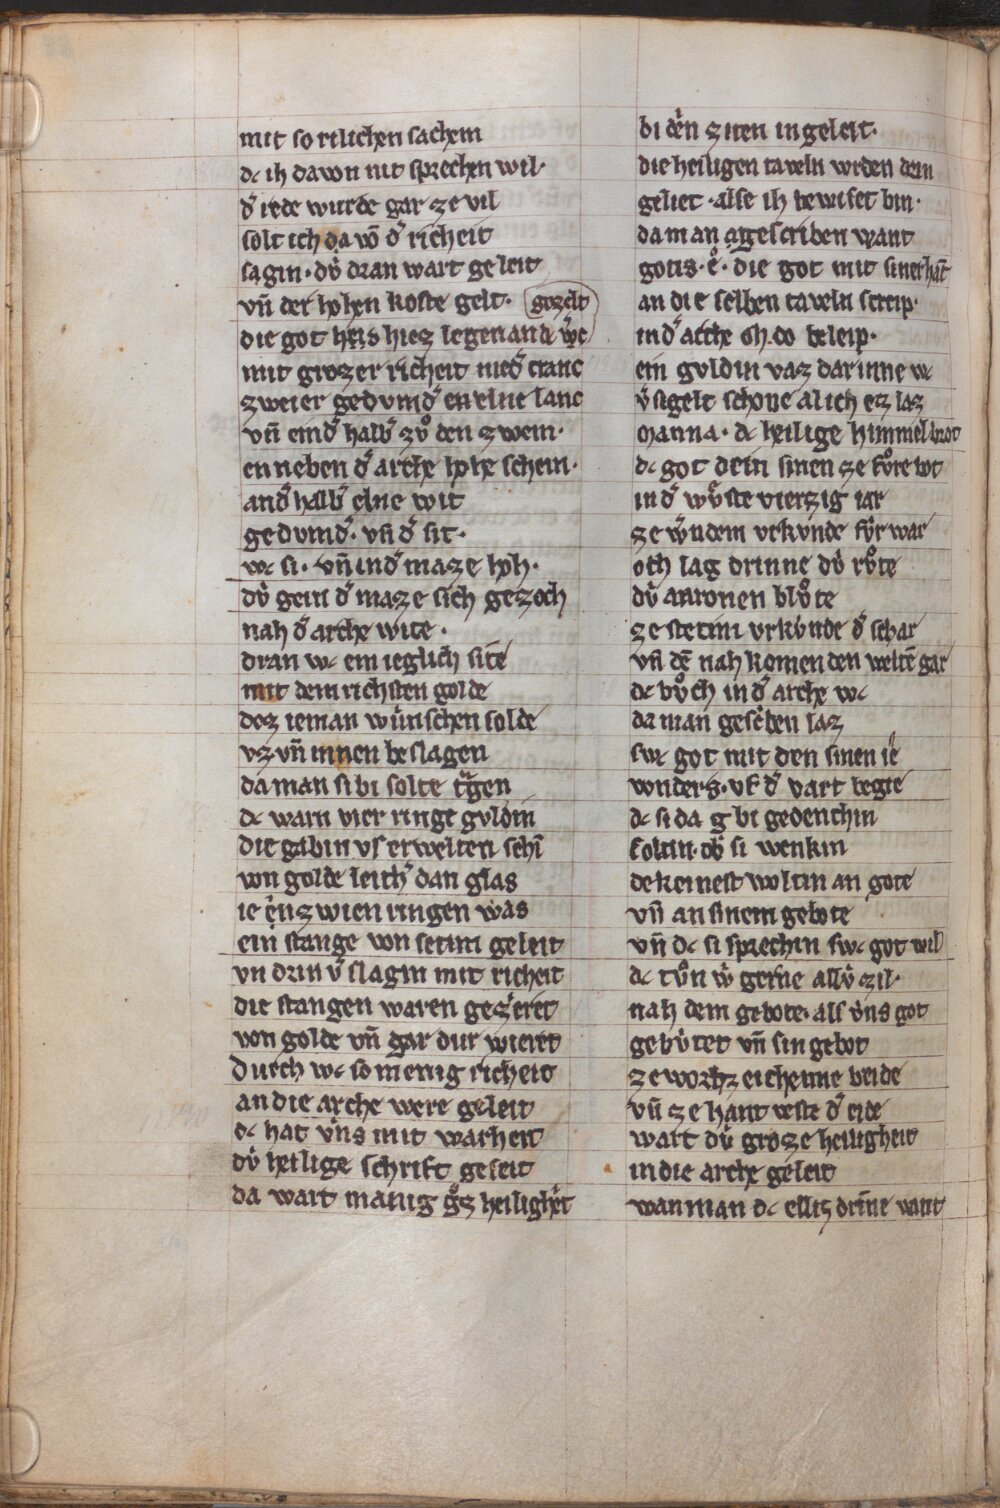 mit so rilichen sachem
dc ih dauon nit sprechen wil·
d͛ rede wurde gar ze vil
solt ich da vō d͛ richeit
sagin· dv̍ dran wart geleit
vn̄ der hohen koste gelt· gozelt
die got hiez legen an d
mit grozer richeit nied͛ cranc
zweier gedvmd͛ elne lanc
vn̄ eind͛ halb͛ zvͦ den zwein·
enneben d͛ arche hohe schein·
and͛halb͛ elne wit
gedvmd͛· vn̄ d͛ sit·
wc si· vn̄ in d͛ maze hoh·
dv̍ gein d͛ maze sich gezoch
nah d͛ arche wite·
dran wc ein ieglich site
mit dem richsten golde
doz ieman wv̍nschen solde
vz vn̄ innen beslagen
da man si bi solte tᵃgen
dc warn vier ringe gvldin
die gabin vs erwelten schī
von golde leith͛ dan glas
ie enzwien ringen was
ein stange von setim geleit
vn drin v͛slagin mit richeit
die stangen waren gezieret
von golde vn̄ gar dur wieret
Durch wc so menig richeit
an die arche were geleit
dc hat v̍ns mit warheit
dv̍ heilige schrift geseit
da wart manig gͦz heilighˢit
bi den ziten in geleit·
die heiligen taveln wrden drin
geliet· alse ih bewiset bin·
da man agescriben vant
gotis· e· die got mit siner hāt
an die selben taveln screip·
in d͛ arche oh do beleip·
ein gvldin vaz dar inne wc
v͛sigelt schone alich ez laz
Manna· dc heilige himmel brot
dc got dein sinen ze fvͦre bot
in d͛ wvͦste vierzig iar
ze wndern vrkvnde fv̍r war
oth lag drinne dv̍ rvͦte
dv̍ aaronen blvͦte
ze stetim vrkv̍nde d͛ schar
vn̄ dē nah komenden weltē gar
dc bvͦch in d͛ arche wc
da man gescͥben laz
swc got mit den sinen ie
wnders· vf d͛ vart begie
dc si da g bi gedenchin
soltin· ob si wenkin
dekeinest woltin an gote
vn̄ an sinem gebote
vn̄ dc si sprechin swc got wil
dc tvͦn w͛ gerne allv̍ zil·
nah dem gebote· als v̍ns got
gebv̍tet vn̄ sin gebot
ze worhzeichenne beide
vn̄ ze hant veste d͛ eide
wart dv̍ groze heiligheit
in die arche geleit
wan man dc elliz drīne vant